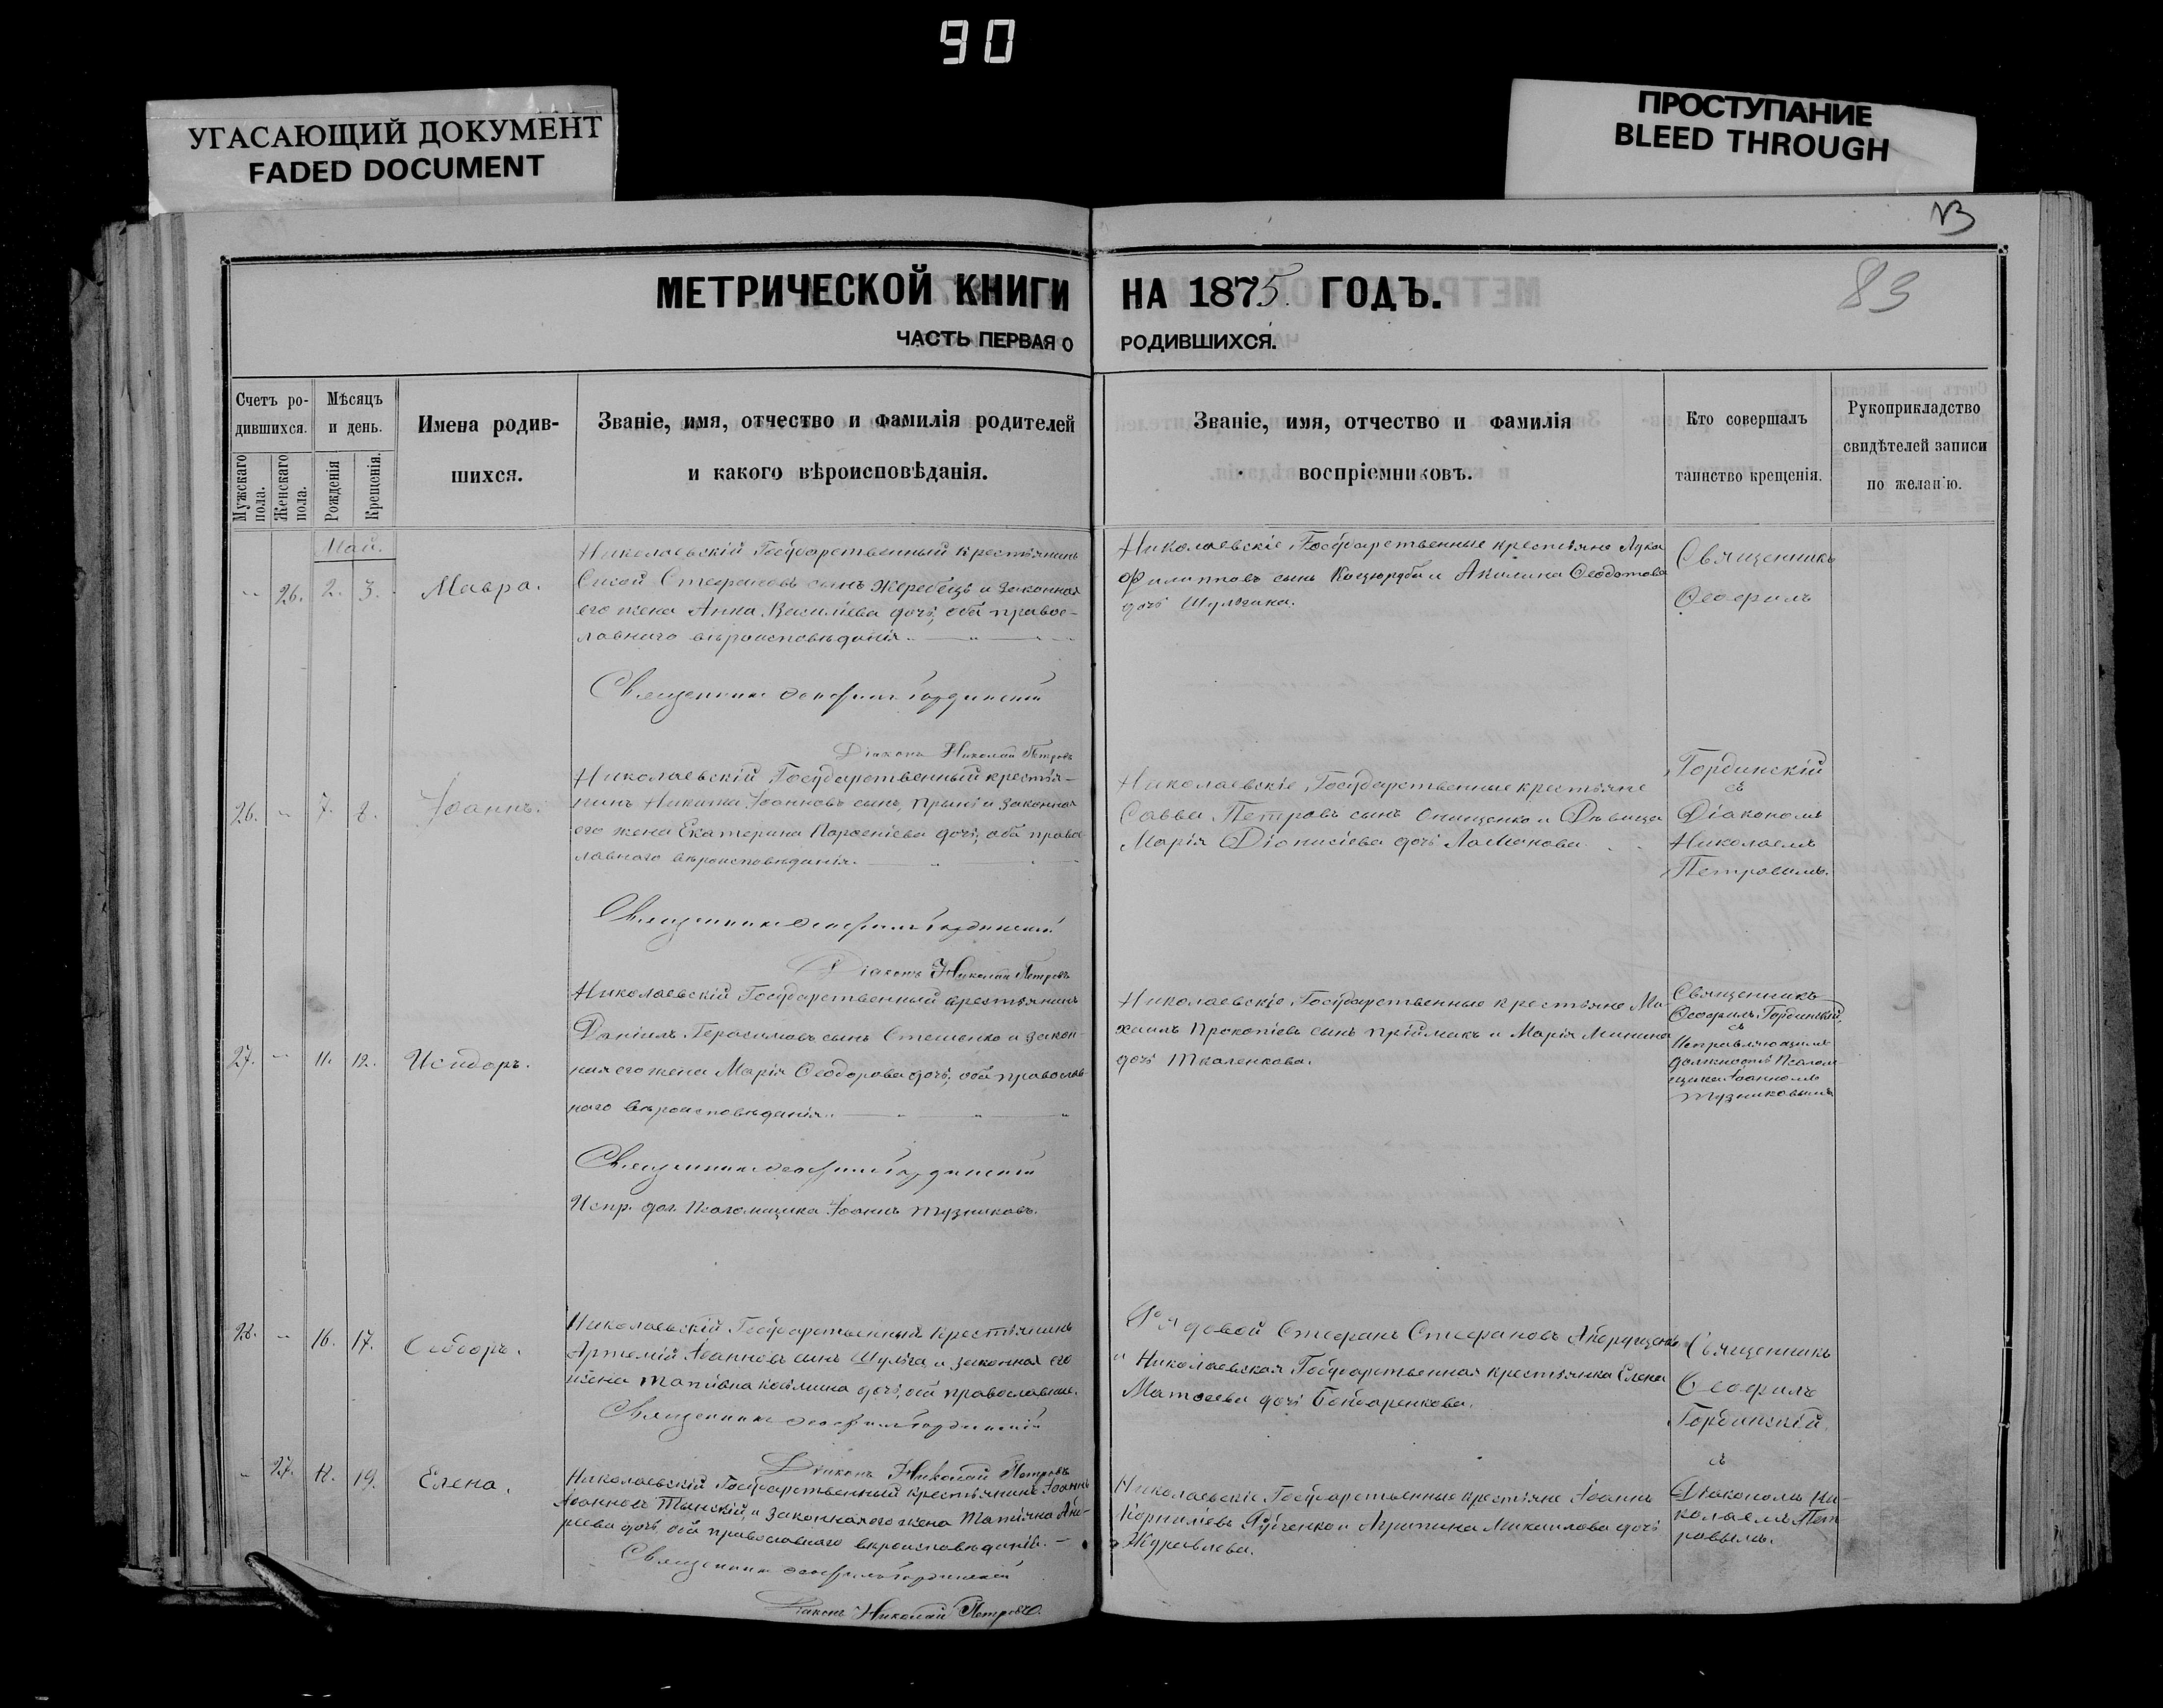 90
УГАСАЮЩИЙ ДОКУМЕНТ
FADED DOCUMENT
ПРОСТУПАНИЕ
BLEED THROUGH
83
МЕТРИЧЕСКОЙ КНИГИ НА 1875 ГОДЪ.
ЧАСТЬ ПЕРВАЯ О РОДИВШИХСЯ.
Счетъ ро-
дившихся.
Мужскаго
пола.
Женскаго
пола.
Мѣсяцъ
и день.
Рожденія
Крещенія.
Имена родив-
шихся.
Званіе, имя, отчество и фамилія родителей
и какого вѣроисповѣданія.
Званіе, имя, отчество и фамилія
воспріемниковъ.
Кто совершалъ
таинство крещенія.
Рукоприкладство
свидѣтелей записи
по желанію.
Май.
26. 2. 3. Мавра.
Николаевскій Государственный крестьянинъ
Стефановъ сынъ Жеребецъ и законная
его жена Анна Василіева дочь, оба право-
лавнаго вѣроисповѣданія.
Священникъ Ѳеофилъ Гординскій
Діаконъ Николай Петровъ
Николаевскіе Государственные крестьяне Лука
Филипповъ сынъ и Акилина Ѳеодотова
дочь Шульгина.
Священникъ
Ѳеофилъ
Гординскій
съ
Діакономъ
Николаемъ
Петровымъ.
26. 7. 8. Іоаннъ.
Николаевскій Государственный крестья-
нинъ Никита Іоанновъ сынъ и законная
его жена Екатерина Парѳеніева дочь, оба право
лавнаго вѣроисповѣданія.
Священникъ Ѳеофилъ Гординскій
Діаконъ Николай Петровъ
Николаевскіе Государственные крестьяне
Савва Петровъ сынъ Онищенко и Дѣвица
Марія Діонисіева дочь
27. 11. 12. Исидоръ.
Николаевскій Государственный крестьянинъ
Даніилъ Герасимовъ сынъ Стешенко и закон-
ная его жена Марія Ѳеодорова дочь, оба православ
наго вѣроисповѣданія.
Священникъ Ѳеофилъ Гординскій
Испр. дол. Псаломщика Іоаннъ Тузниковъ.
Николаевскіе Государственные крестьяне Ми-
хаилъ Прокопіевъ сынъ Пріймакъ и Марія Минина
дочь Ткаленкова.
Священникъ
Ѳеофилъ Гординскій
съ
Исправляющимъ
должность Псалом
щика Іоанномъ
Тузниковымъ
28. 16. 17. Ѳеодоръ.
Николаевскій Государственный крестьянинъ
Артемій Іоанновъ сынъ Шульга и законная его
жена Татіана дочь, оба православные.
Священникъ Ѳеофилъ Гординскій
Діаконъ Николай Петровъ
Рядовой Стефанъ Стефановъ
и Николаевская Государственная крестьянка Елена
Матѳеева дочь Бондаренкова.
Священникъ
Ѳеофилъ
Гординскій
съ
Діакономъ Ни-
колаемъ Пет
ровымъ.
27. 19. Елена.
Николаевскій Государственный крестьянинъ Іоаннъ
Іоанновъ и законная его жена Татіана Анд-
реева дочь, оба православнаго вѣроисповѣданія.
Священникъ Ѳеофилъ Гординскій
Діаконъ Николай Петровъ.
Николаевскіе Государственные крестьяне Іоаннъ
Корниліевъ и Агрипина Михаилова дочь
Журавлева.